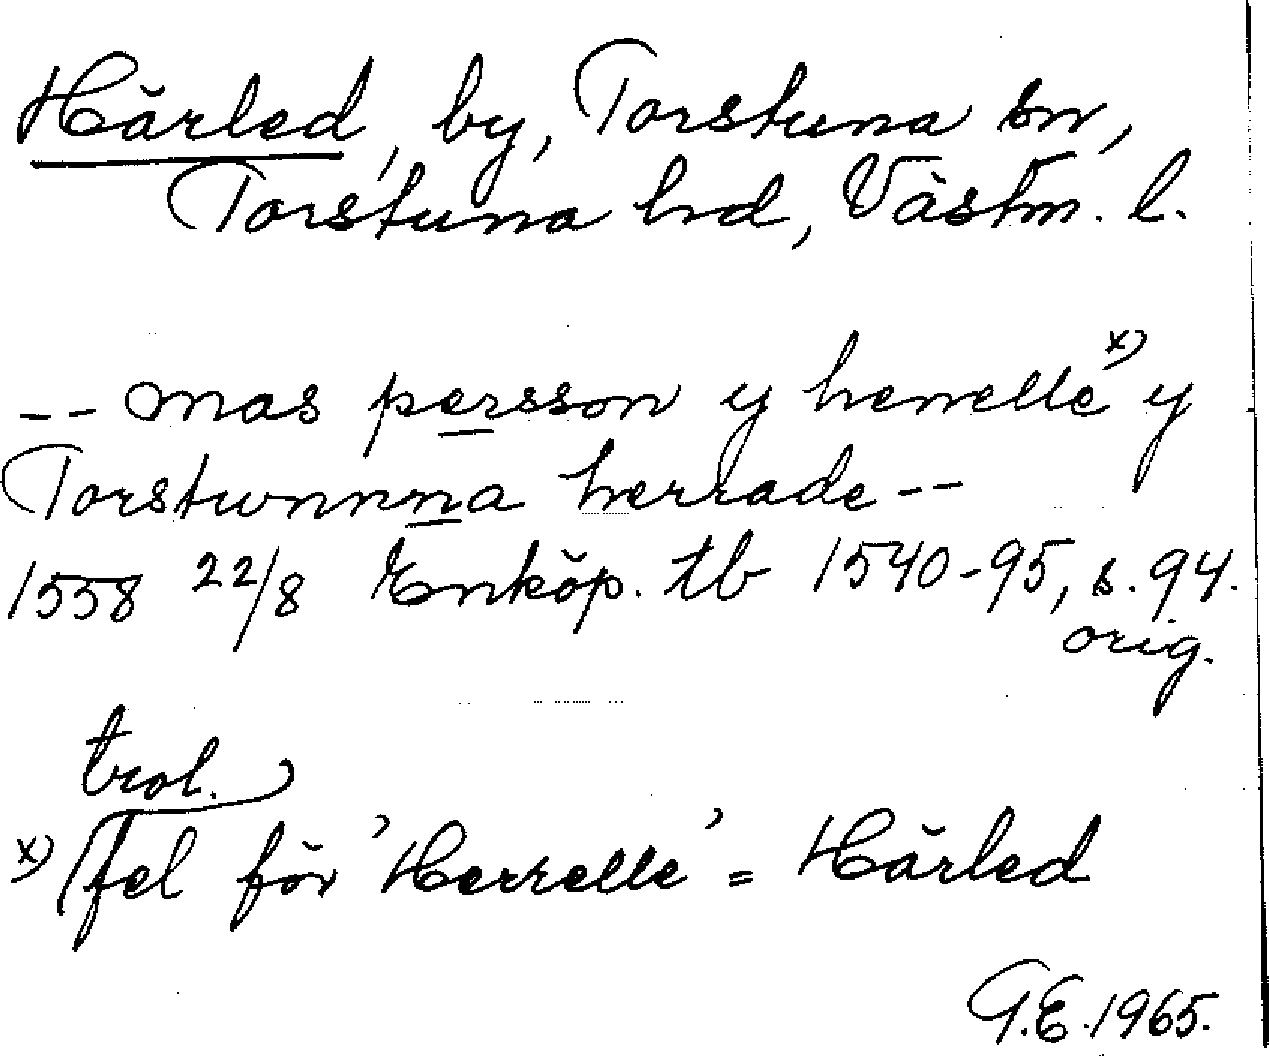 Härled, by, Torstuna sn,
Torstuna hd, Västm. l.
-- Mas persson y henelle x) y
Torstwnnna herrade --
1558 22/8 Enköp. tb 1540-95, s. 94.
orig.
trol.
x) fel för 'Herrelle' = Härled
G.E. 1965.